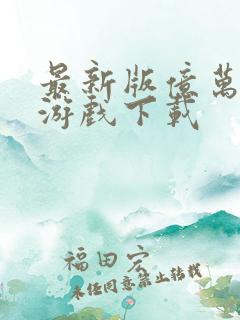 最新版億萬
游戲下載
福田宏
未经同意禁止转载